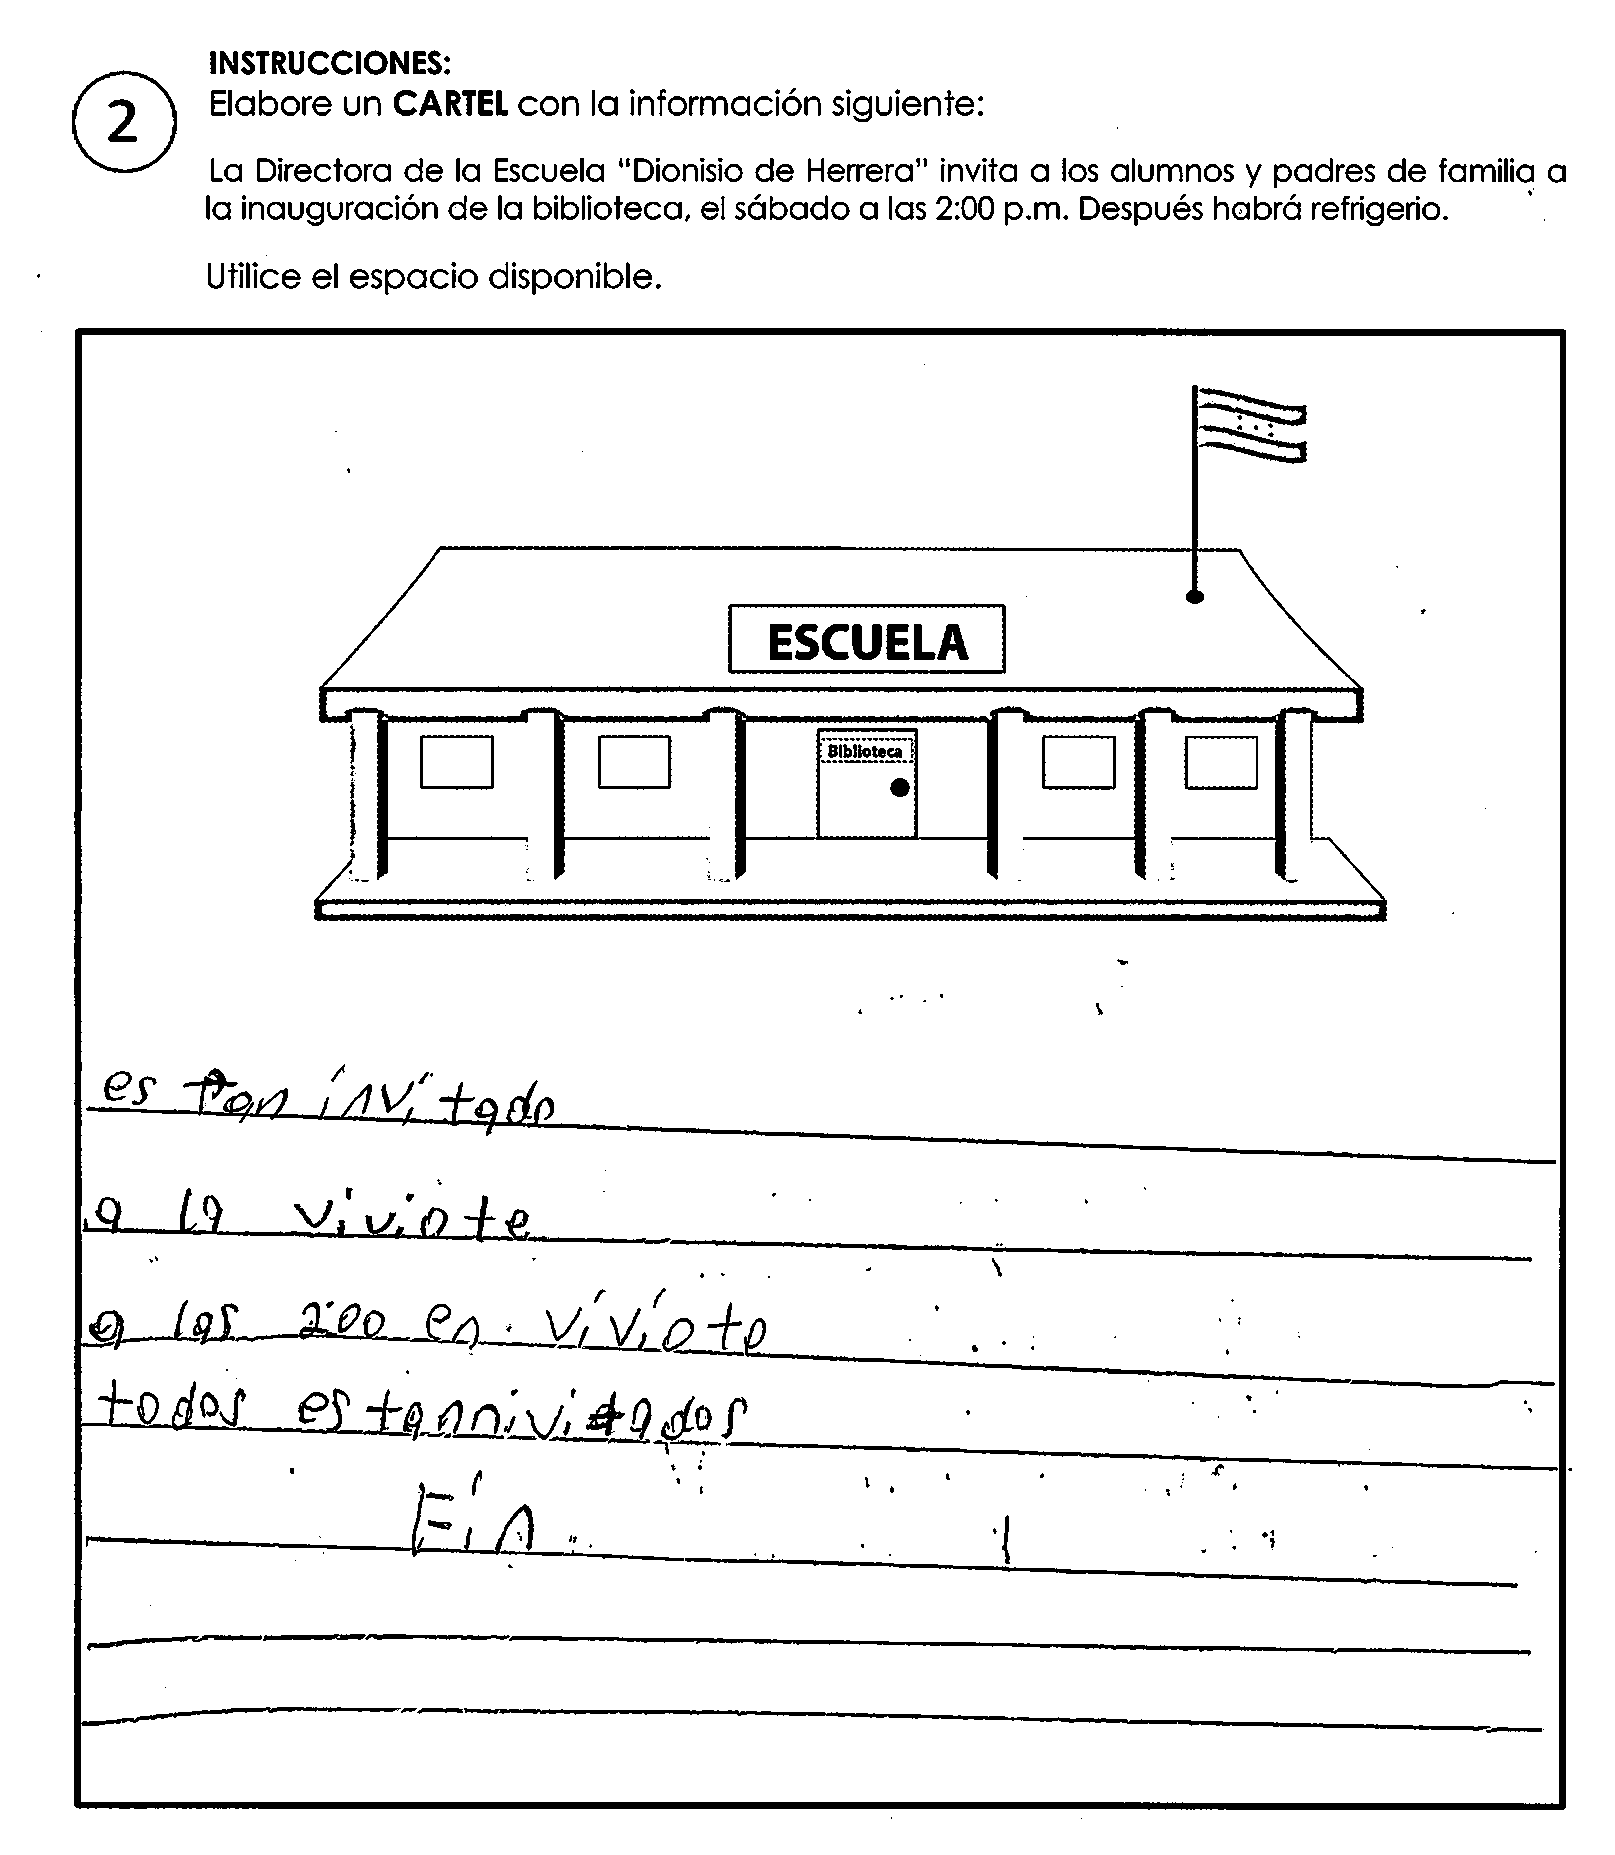 INSTRUCCIONES:
2
Elabore un CARTEL con la información siguiente:
La Directora de la Escuela "Dionisio de Herrera" invita a los alumnos y padres de familia a
la inauguración de la biblioteca, el sábado a las 2:00 p.m. Después habrá refrigerio.
Utilice el espacio disponible.
ESCUELA
Biblioteca
es tan invitado
a la viviote
a las 2:00 en viviote
todos estannivitados
Fin